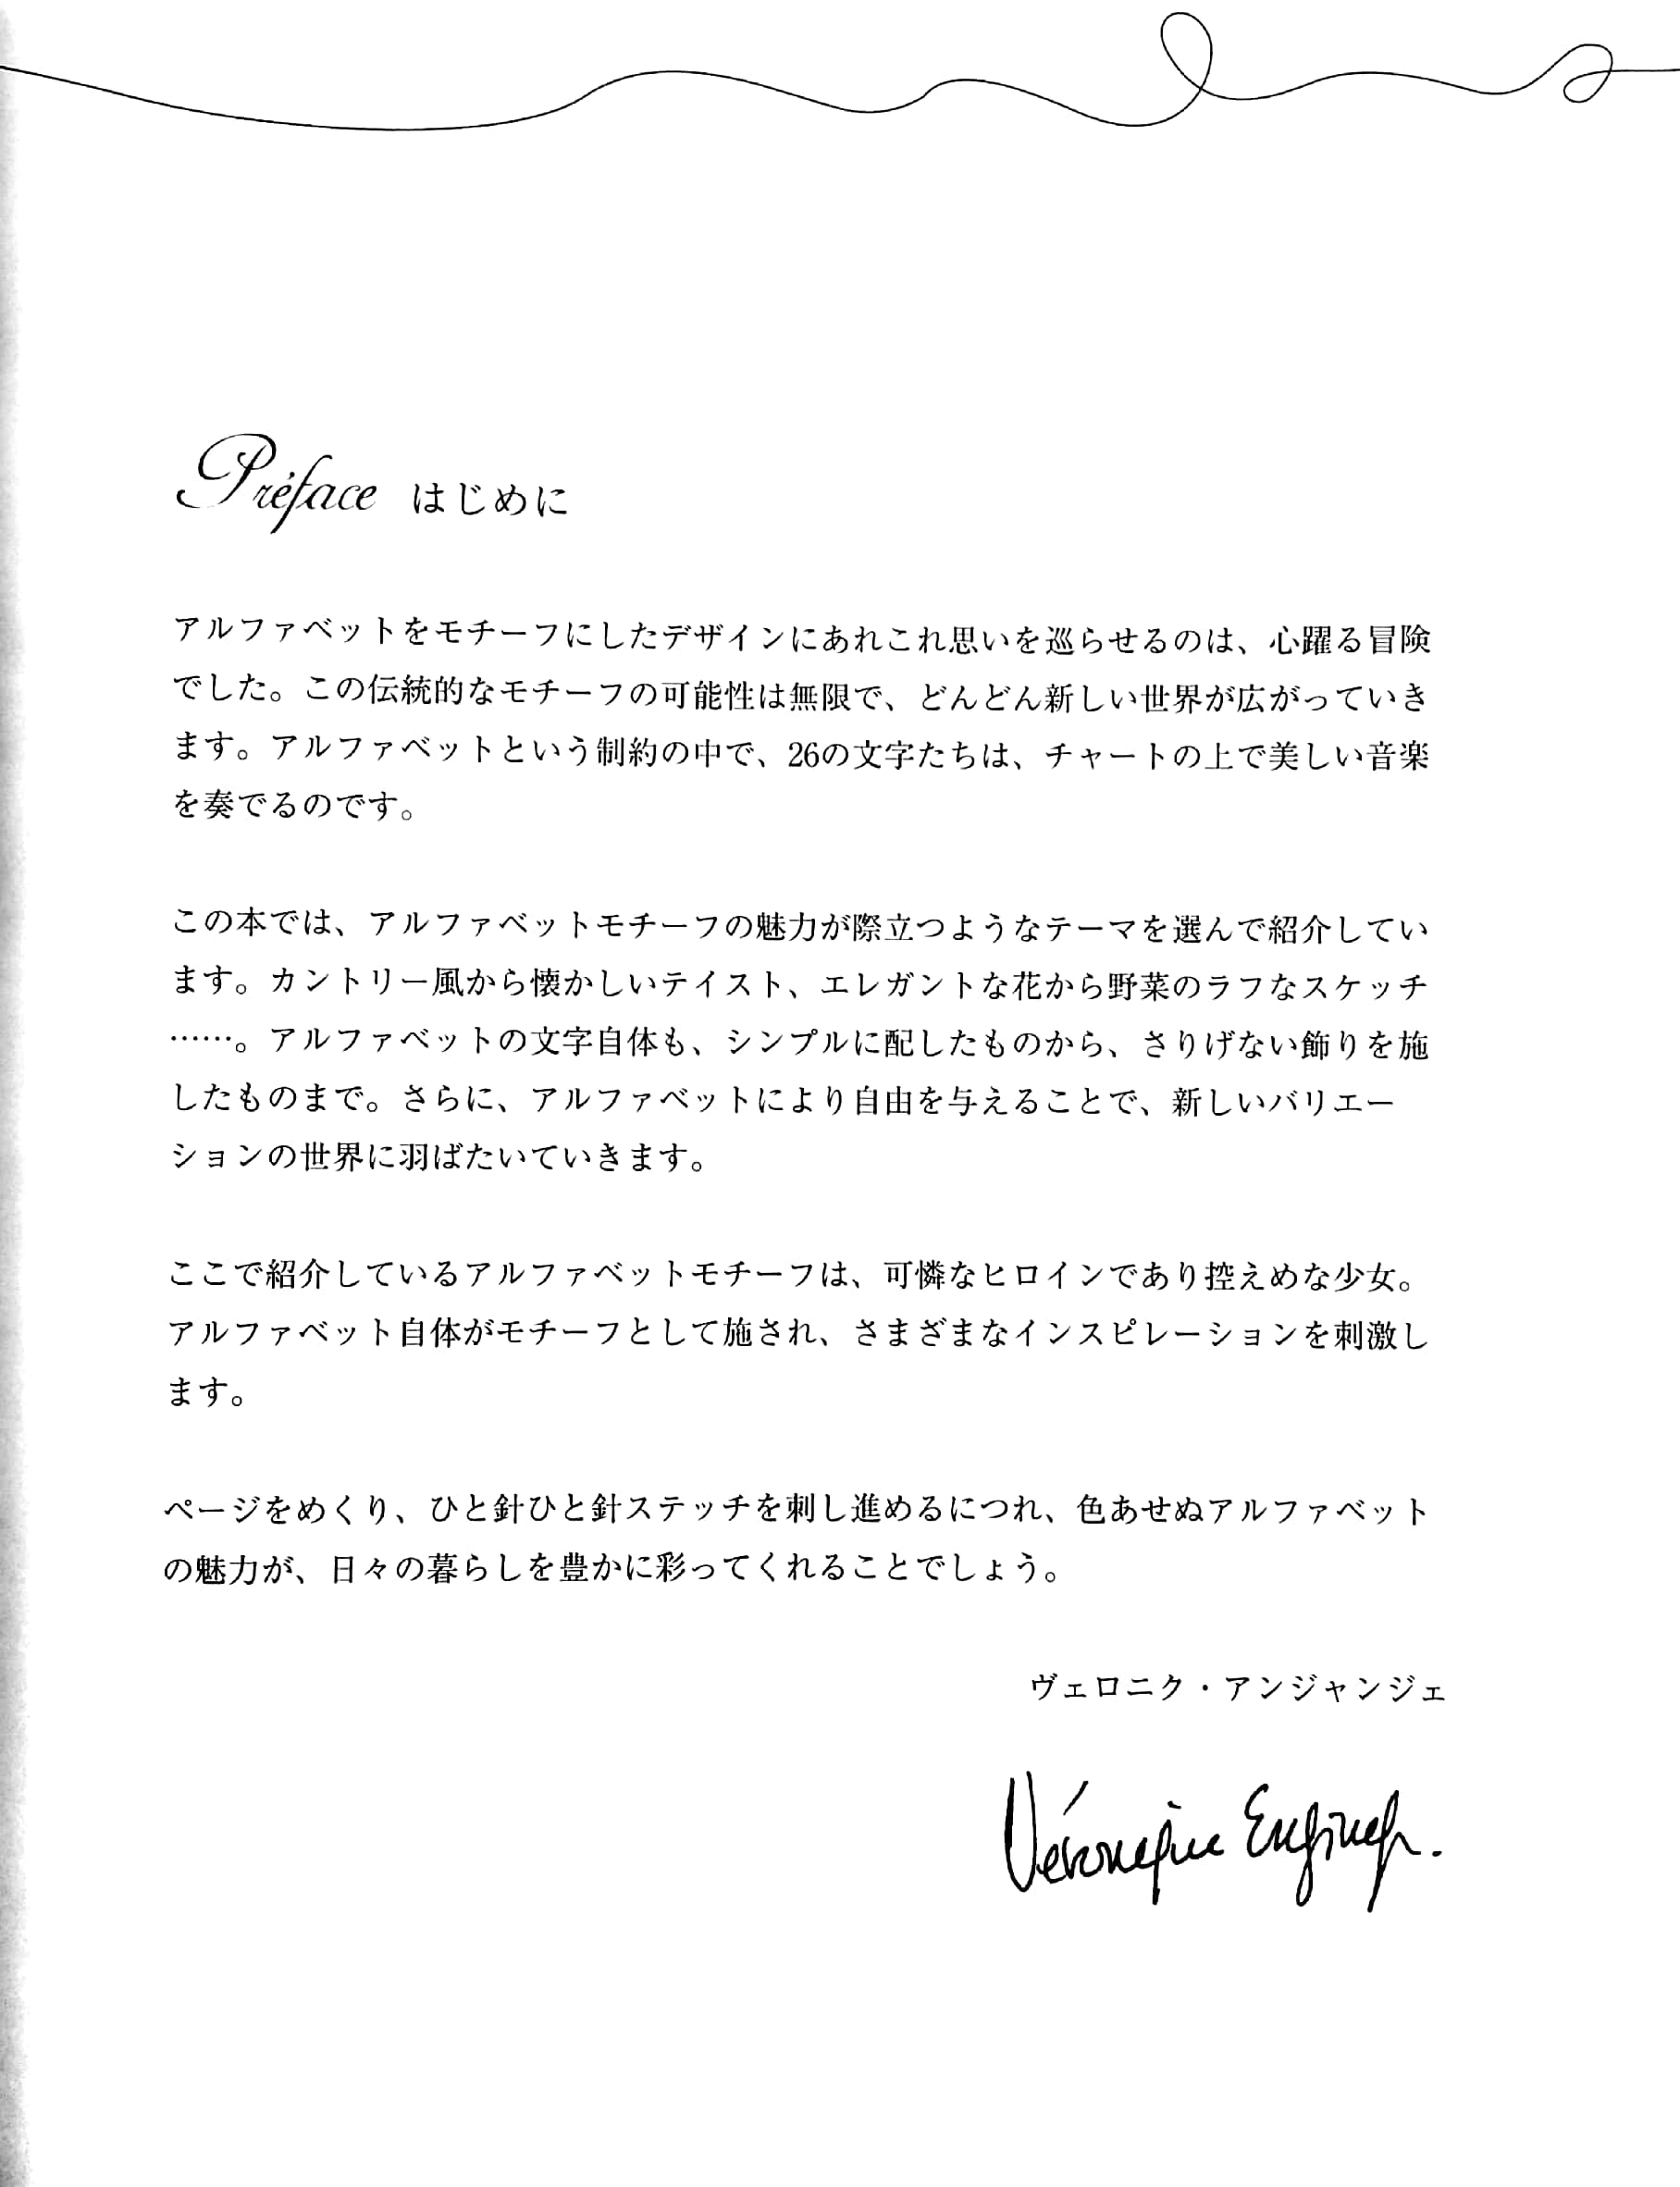 Préface はじめに
アルファベットをモチーフにしたデザインにあれこれ思いを巡らせるのは、心躍る冒険
でした。この伝統的なモチーフの可能性は無限で、どんどん新しい世界が広がっていき
ます。アルファベットという制約の中で、26の文字たちは、チャートの上で美しい音楽
を奏でるのです。
この本では、アルファベットモチーフの魅力が際立つようなテーマを選んで紹介してい
ます。カントリー風から懐かしいテイスト、エレガントな花から野菜のラフなスケッチ
……。アルファベットの文字自体も、シンプルに配したものから、さりげない飾りを施
したものまで。さらに、アルファベットにより自由を与えることで、新しいバリエー
ションの世界に羽ばたいていきます。
ここで紹介しているアルファベットモチーフは、可憐なヒロインであり控えめな少女。
アルファベット自体がモチーフとして施され、さまざまなインスピレーションを刺激し
ます。
ページをめくり、ひと針ひと針ステッチを刺し進めるにつれ、色あせぬアルファベット
の魅力が、日々の暮らしを豊かに彩ってくれることでしょう。
ヴェロニク・アンジャンジェ
Véronique Enginger.